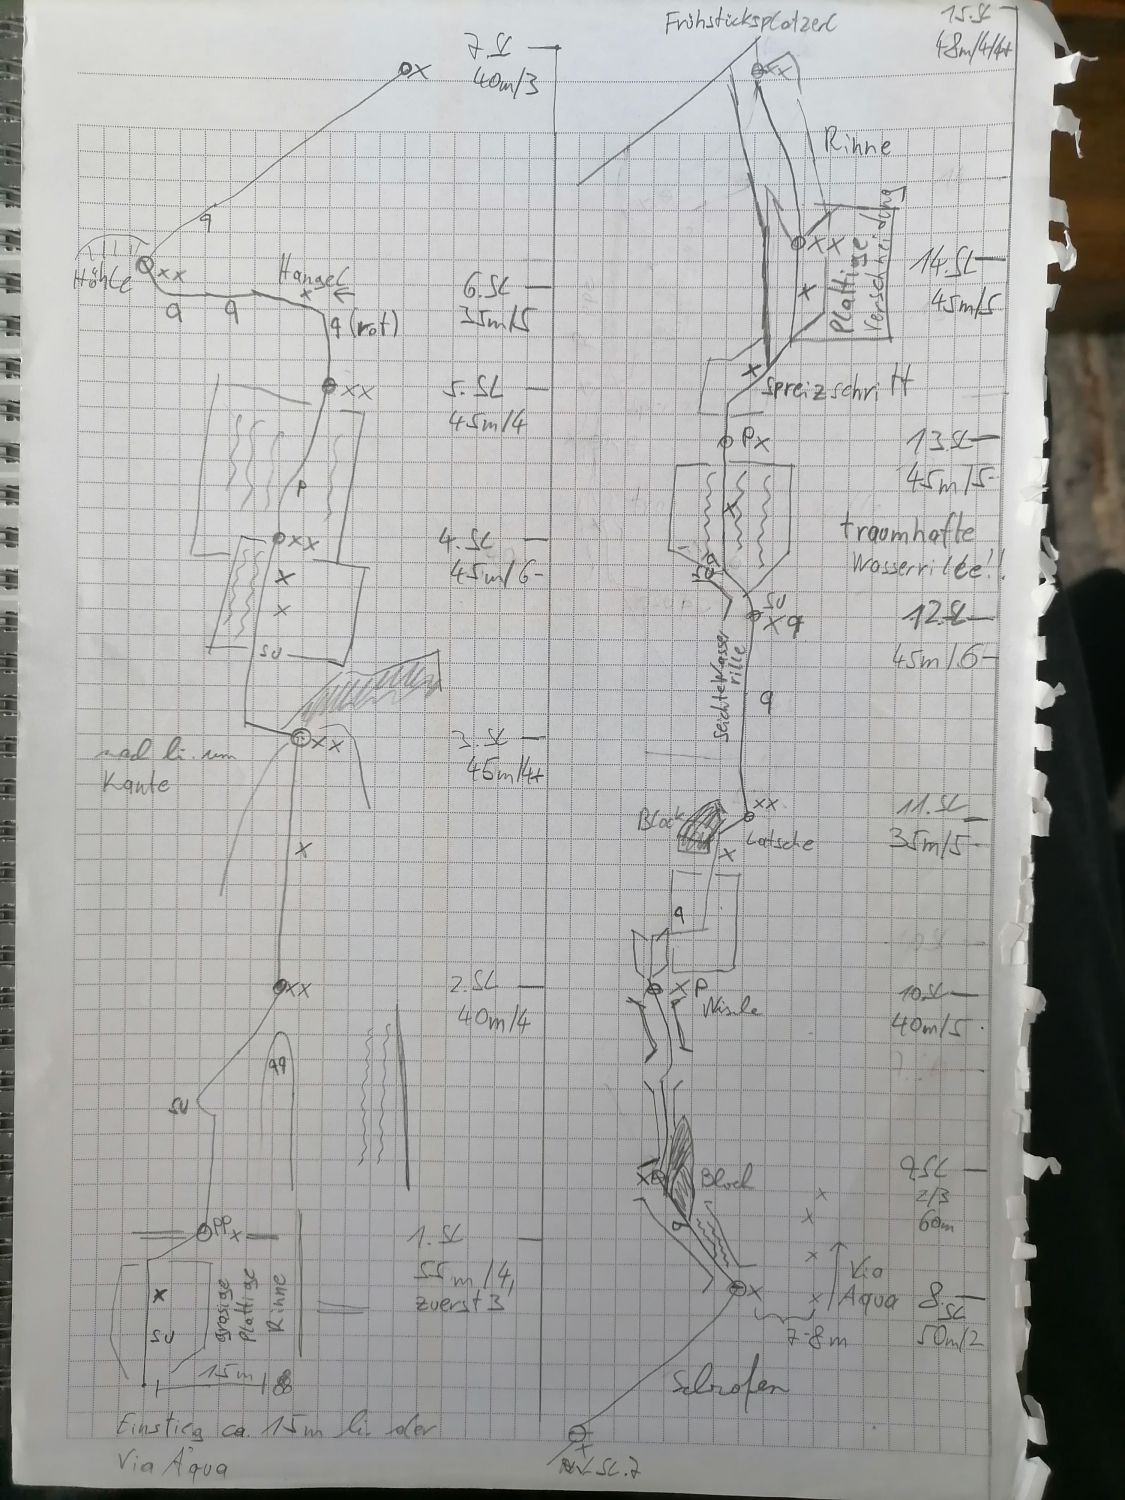 7.SL
40m/3
X
q
Höhle
XX
q
q
Hangel
X
6.SL
35m/5
q (rot)
XX
5.SL
45m/4
P
XX
4.SL
45m/6-
X
X
SU
XX
3.SL
45m/4+
nach li. um
Kante
X
XX
2.SL
40m/4
qq
SU
PP X
1.SL
55m/4,
zuerst 3
X
SU
grasige
Plattige
Rinne
15m
Einstieg ca. 15m li der
Via Aqua
Frühstücksplatzerl
15.SL
48m/4/4+
XX
Rinne
XX
X
Plattige
Verschneidung
14.SL
45m/5
X
Spreizschritt
P X
13.SL
45m/5-
X
traumhafte
Wasserrille!!
SU
X q
12.SL
45m/6-
Seichte Wasser
rille
q
XX
11.SL
35m/5-
Block
Latsche
X
q
X P
Nische
10.SL
40m/5-
X
Block
9.SL
2/3
60m
q
X
X
X
X
X
Via
Aqua
8.SL
50m/2
7-8m
Schrofen
X
SL.7